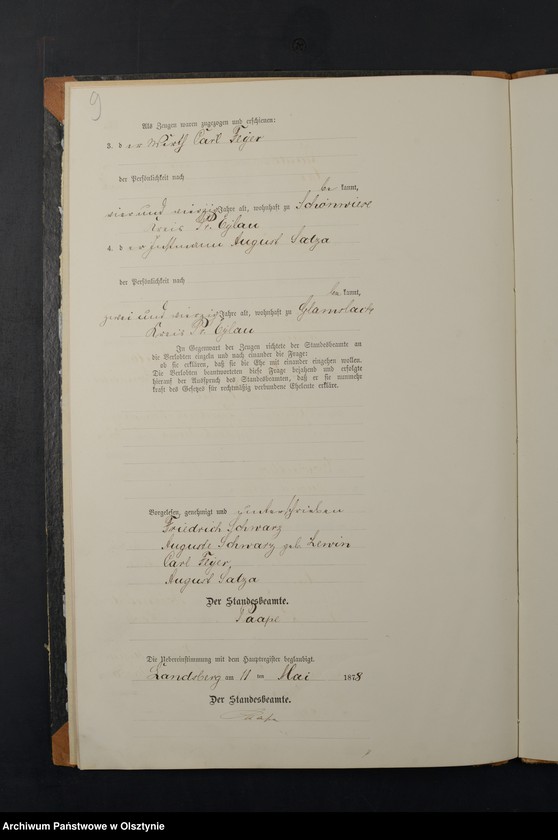 9
Als Zeugen waren zugezogen und erschienen:
3. der Wirth Carl Feyer
der Persönlichkeit nach
be kannt,
vier und vierzig Jahre alt, wohnhaft zu Schönwiese
Kreis Pr. Eylau
4. der Instmann August Salza
der Persönlichkeit nach
be kannt,
zwei und vierzig Jahre alt, wohnhaft zu Glamslack
Kreis Pr. Eylau
In Gegenwart der Zeugen richtete der Standesbeamte an
die Verlobten einzeln und nach einander die Frage:
ob sie erklären, daß sie die Ehe mit einander eingehen wollen.
Die Verlobten beantworteten diese Frage bejahend und erfolgte
hierauf der Ausspruch des Standesbeamten, daß er sie nunmehr
kraft des Gesetzes für rechtmäßig verbundene Eheleute erkläre.
Vorgelesen, genehmigt und unterschrieben
Friedrich Schwarz
Auguste Schwarz geb. Lewin
Carl Feyer,
August Salza
Der Standesbeamte.
Paape
Die Uebereinstimmung mit dem Hauptregister beglaubigt.
Landsberg am 11 ten Mai 1878
Der Standesbeamte.
Paape
Archiwum Państwowe w Olsztynie